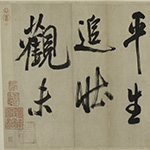 平生
追壯
觀未